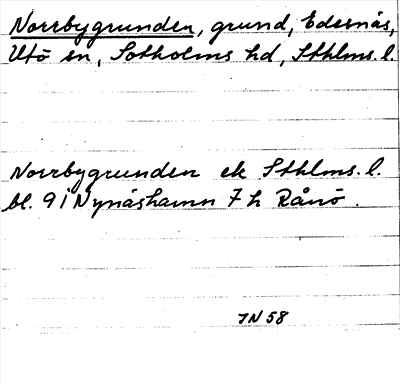 Norrbygrunden, grund, Edesnäs,
Utö sn, Sotholms hd, Sthlms. l.
Norrbygrunden ek Sthlms. l.
bl. 9 I Nynäshamn 7 h Rånö.
IN 58